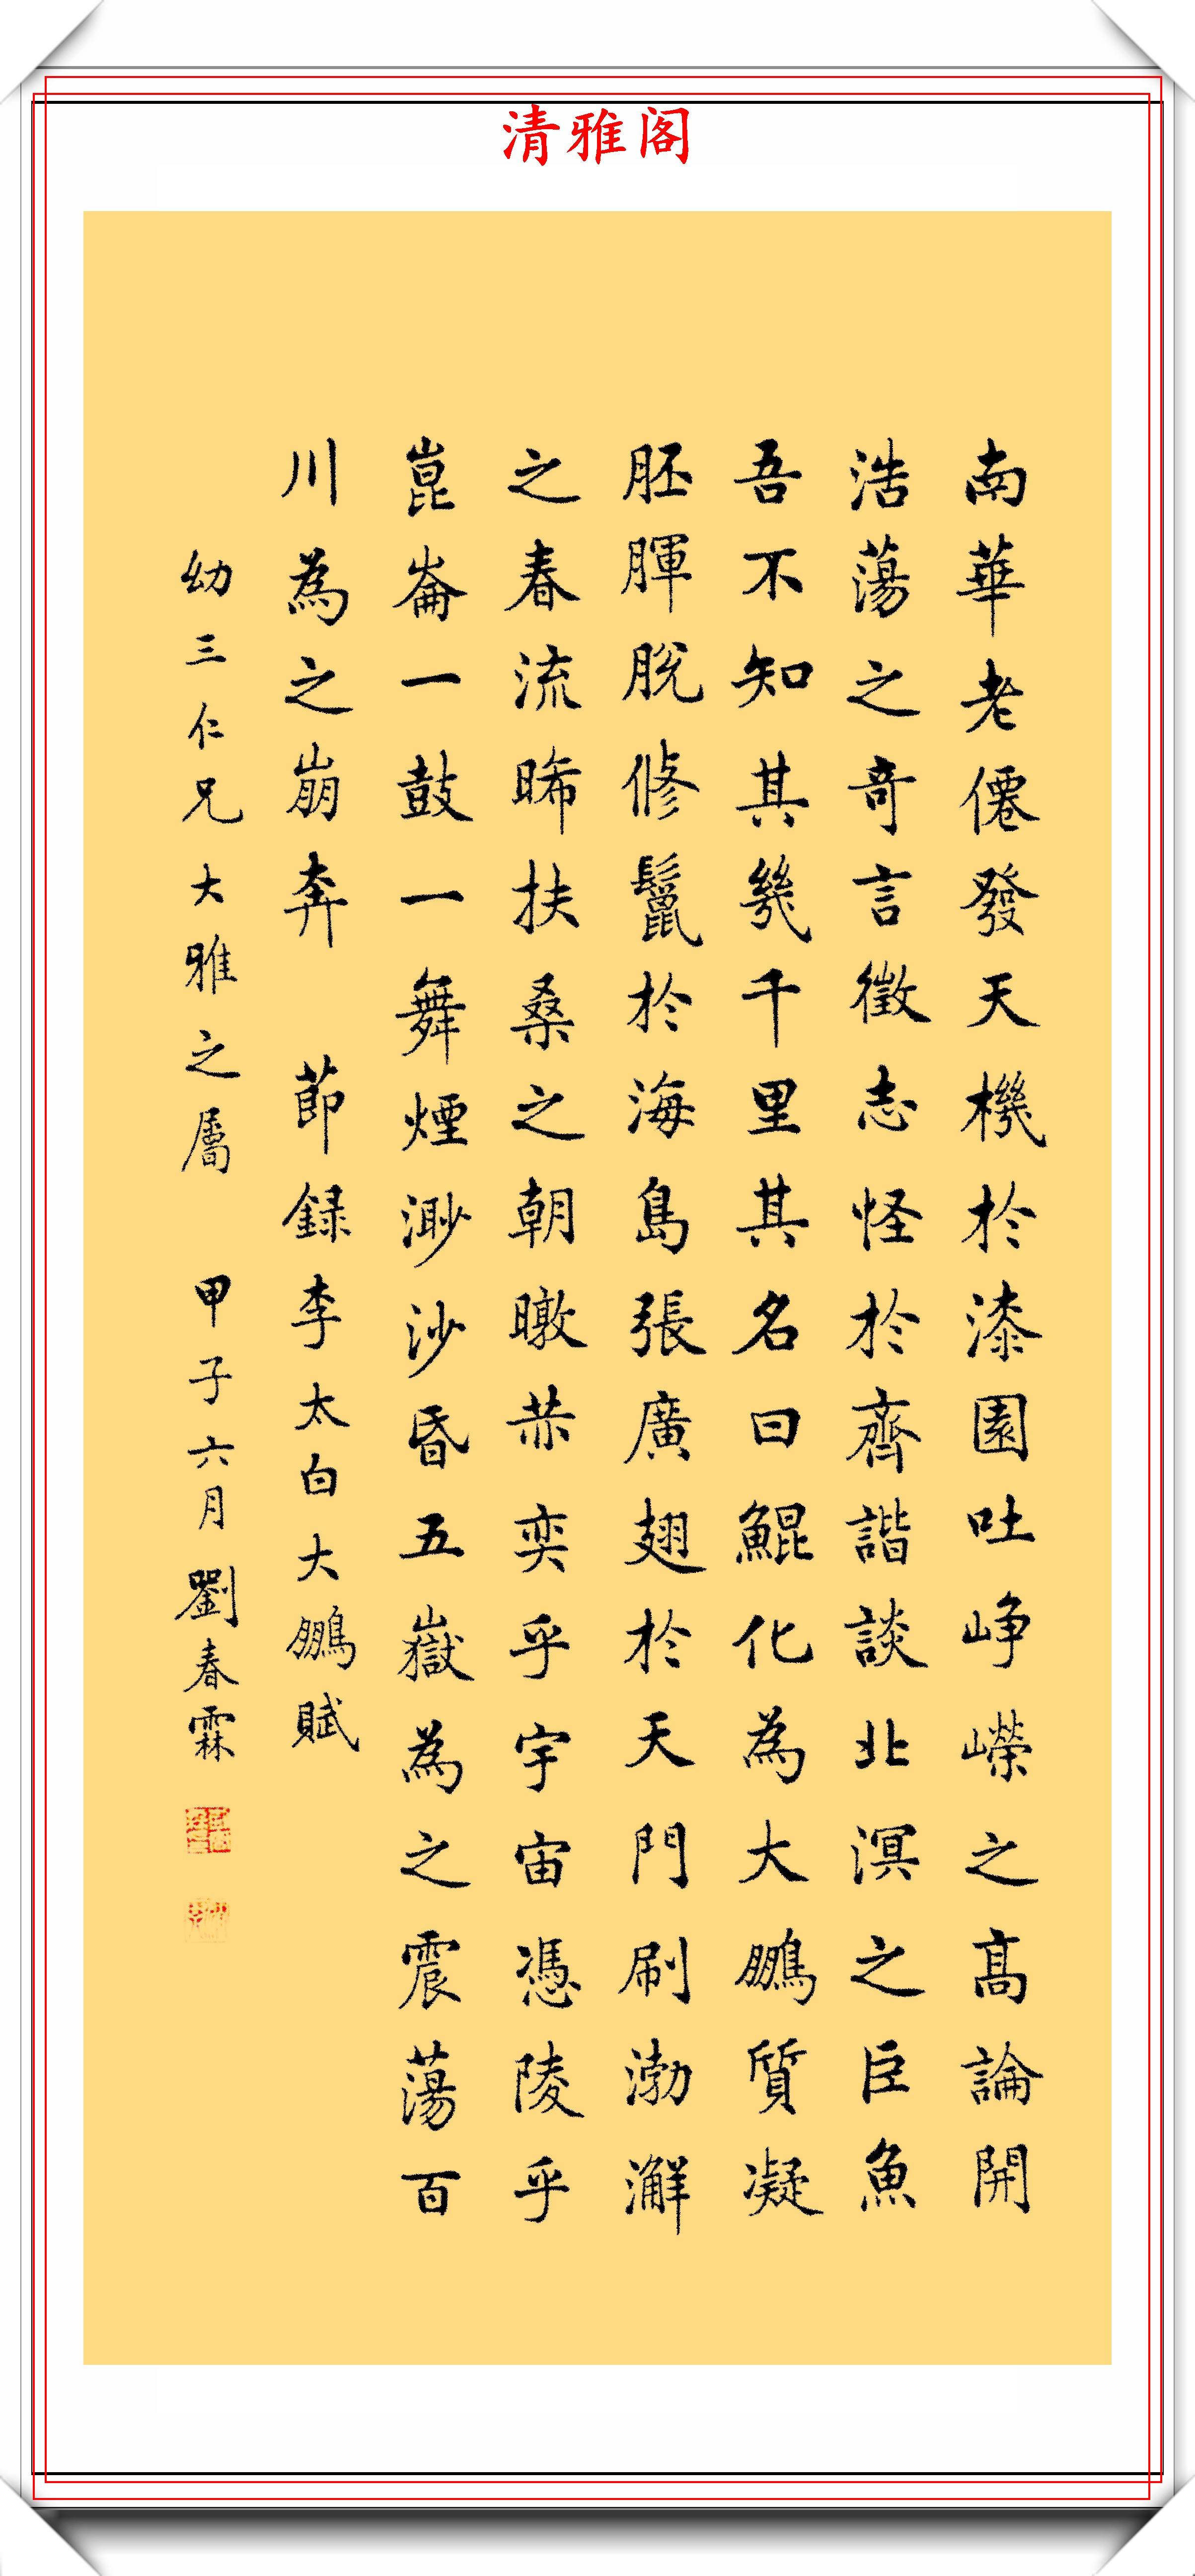 清雅阁
南華老僊發天機於漆園吐崢嶸之高論開
浩蕩之奇言徵志怪於齊諧談北溟之巨魚
吾不知其幾千里其名曰鯤化為大鵬質凝
胚腪脫修鬣於海島張廣翅於天門刷渤澥
之春流晞扶桑之朝暾恭奕乎宇宙憑陵乎
崑崙一鼓一舞煙渺沙昏五嶽為之震蕩百
川為之崩奔 節録李太白大鵬賦
幼三仁兄大雅之屬 甲子六月劉春霖